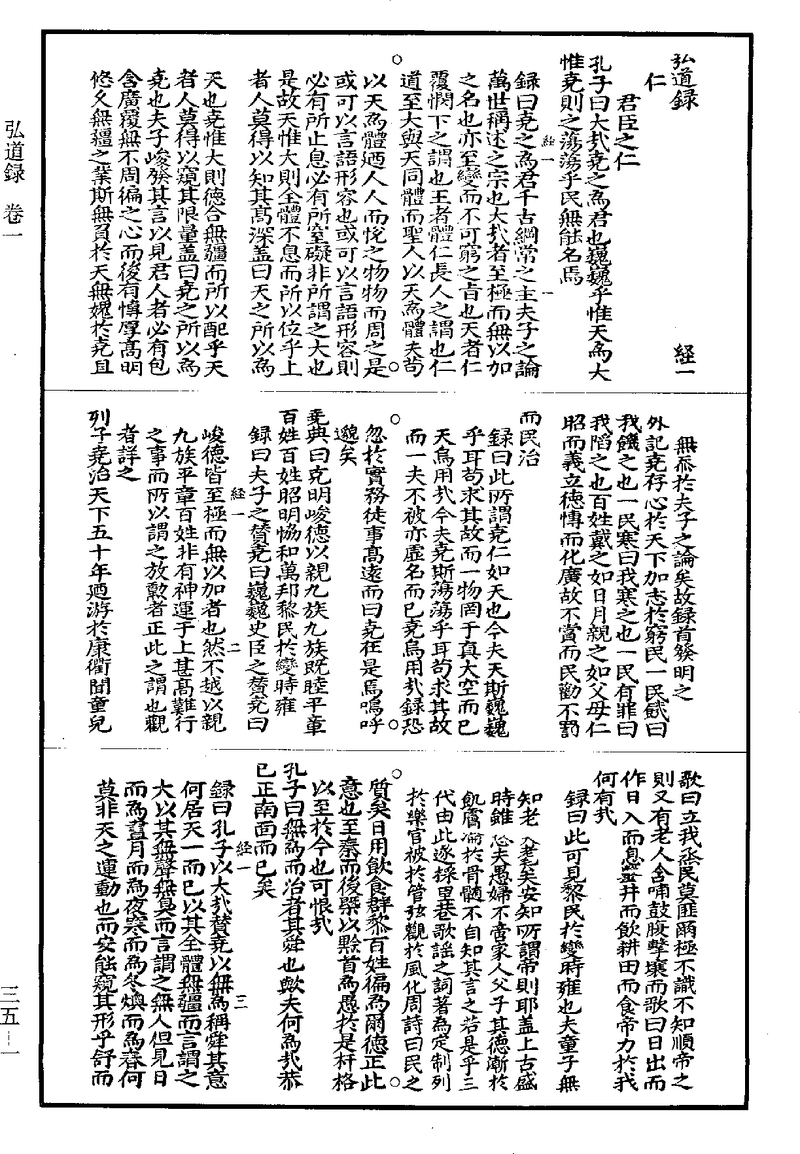 弘道録　卷一
弘道録　経一
仁
君臣之仁
孔子曰大哉堯之為君也巍巍乎惟天為大
惟堯則之蕩蕩乎民無能名焉
録曰堯之為君千古綱常之主夫子之論
萬世稱述之宗也大哉者至極而無以加
之名也亦至變而不可窮之旨也天者仁
覆憫下之謂也王者體仁長人之謂也仁
道至大與天同體而聖人以天為體夫苟
以天為體廼人人而恱之物物而周之是
或可以言語形容也或可以言語形容則
必有所止息必有所窒礙非所謂之大也
是故天惟大則全體不息而所以位乎上
者人莫得以知其髙深盖曰天之所以為
天也堯惟大則德合無疆而所以配乎天
者人莫得以窺其限量盖曰堯之所以為
堯也夫子峻發其言以見君人者必有包
含廣覆無不周徧之心而後有愽厚髙明
悠久無疆之業斯無負於天無媿於堯且
無忝於夫子之論矣故録首發明之
外記堯存心於天下加志於窮民一民飢曰
我饑之也一民寒曰我寒之也一民有罪曰
我陷之也百姓戴之如日月親之如父母仁
昭而義立徳愽而化廣故不賞而民勸不罰
而民治
録曰此所謂堯仁如天也今夫天斯巍巍
乎耳苟求其故而一物罔于真大空而已
天烏用哉今夫堯斯蕩蕩乎耳苟求其故
而一夫不被亦虚名而已堯烏用哉録恐
忽於實務徒事髙逺而曰堯在是焉嗚呼
邈矣
堯典曰克明峻德以親九族九族既睦平章
百姓百姓昭明恊和萬邦黎民於變時雍
録曰夫子之賛堯曰巍巍史臣之賛堯曰
峻德皆至極而無以加者也然不越以親
九族平章百姓非有神運于上甚髙難行
之事而所以謂之放勲者正此之謂也觀
者詳之
列子堯治天下五十年廼游於康衢聞童兒
歌曰立我烝民莫匪爾極不識不知順帝之
則又有老人含哺鼓腹擊壤而歌曰日出而
作日入而息鑿井而飲耕田而食帝力於我
何有哉
録曰此可見黎民於變時雍也夫童子無
知老人耄矣安知所謂帝則耶盖上古盛
時雖愚夫愚婦不啻家人父子其德漸於
飢膚淪於骨髓不自知其言之若是乎三
代由此遂採里巷歌謡之詞著為定制列
於樂官被於管弦觀於風化周詩曰民之
質矣日用飲食群黎百姓徧為爾德正此
意也至秦而後槩以黔首為愚於是杆格
以至於今也可恨哉
孔子曰無為而治者其舜也歟夫何為哉恭
已正南面而已矣
録曰孔子以大哉賛堯以無為稱舜其意
何居天一而已以其全體無疆而言謂之
大以其無聲無臭而言謂之無人但見日
而為晝月而為夜寒而為冬燠而為春何
莫非天之運動也而安能窺其形乎舒而
経一　一
経一　二
経一　三
三五—一